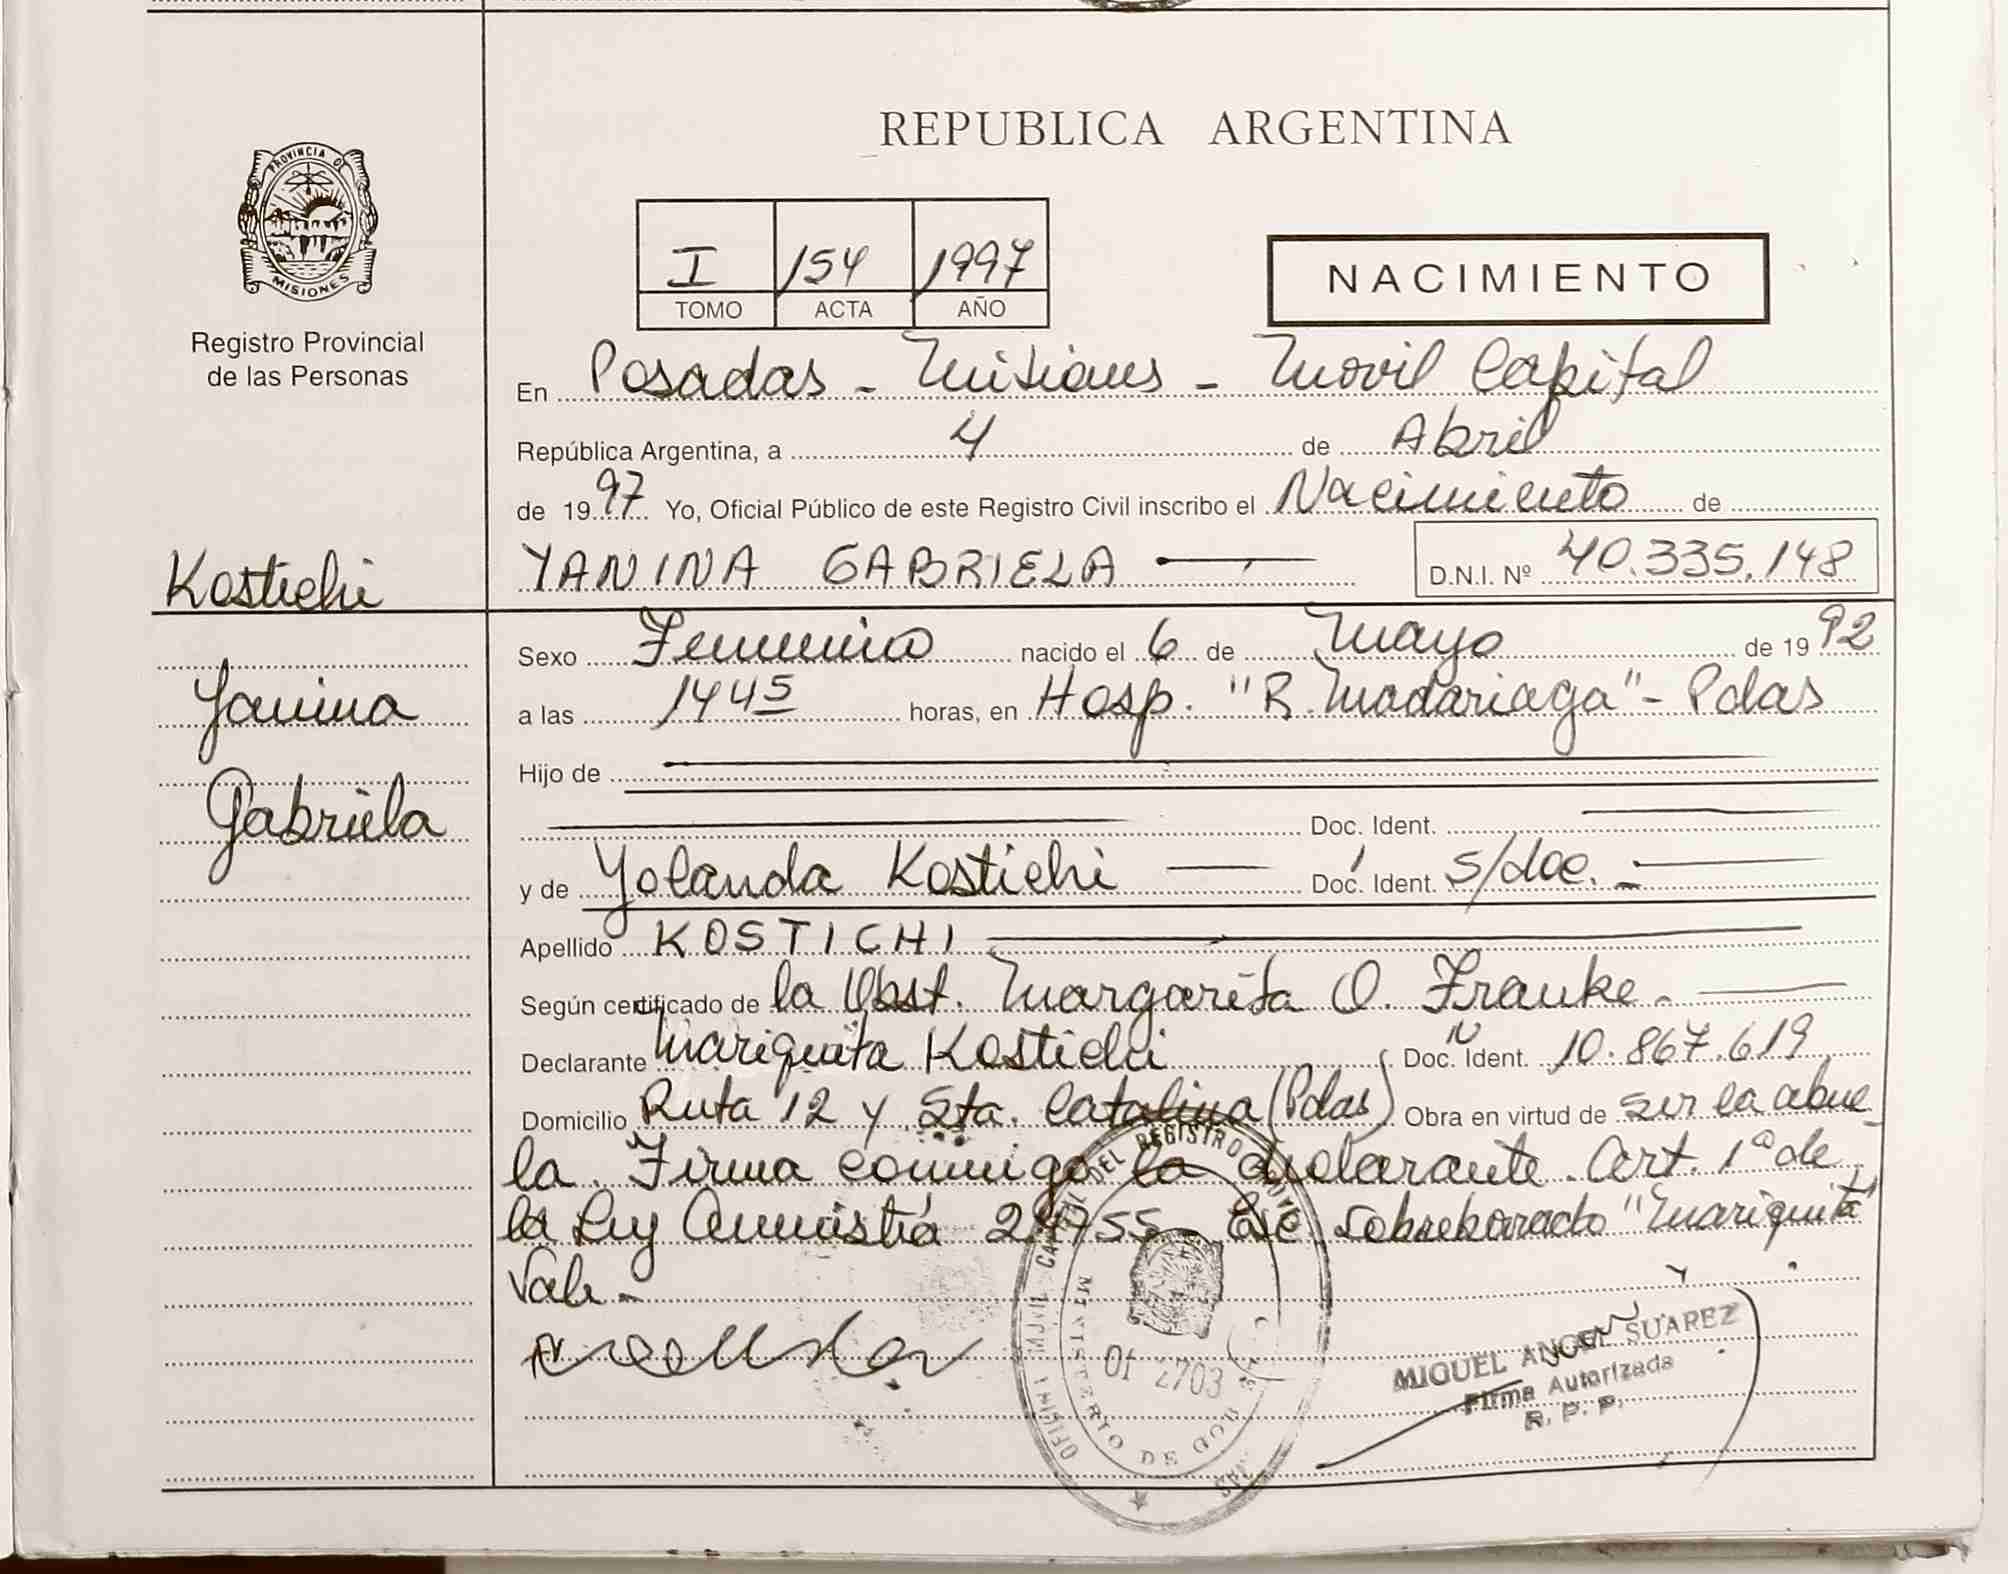 REPUBLICA ARGENTINA
PROVINCIA D
MISIONES
Registro Provincial
de las Personas
I 154 1997
TOMO ACTA AÑO
NACIMIENTO
En Posadas - Misiones - Movil Capital
República Argentina, a 4 de Abril
de 1997 Yo, Oficial Público de este Registro Civil inscribo el Nacimiento de
YANINA GABRIELA D.N.I. Nº 40.335.148
Kostichi
Yanina
Gabriela
Sexo Femenino nacido el 6 de Mayo de 1992
a las 1445 horas, en Hosp. "R. Madariaga" - Pdas
Hijo de
Doc. Ident.
y de Yolanda Kostichi Doc. Ident. s/doc.
Apellido KOSTICHI
Según certificado de la Obst. Margarita O. Franke.
Declarante Mariquita Kostichi Doc. Ident. 10.867.619
Domicilio Ruta 12 y Sta. Catalina (Pdas) Obra en virtud de ser la abue
la. Firma conmigo la declarante. Art. 1º de
la Ley Amnistía 24755 - sobreborrado "Mariquita"
Vale.
OFICINA MOVIL CAPITAL DEL REGISTRO CIVIL
MINISTERIO DE GOB
Of 2703
MIGUEL ANGEL SUAREZ
Firma Autorizada
R. P. P.